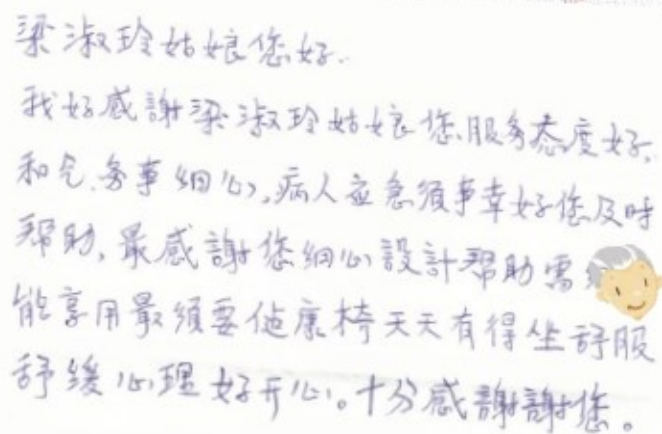 梁淑玲姑娘您好.
我好感謝梁淑玲姑娘您服务态度好,
和气.务事细心,病人应急须事幸好您及时
帮助,最感謝您细心設計帮助需
能享用最须要健康椅天天有得坐舒服
舒缓心理好开心。十分感謝謝您。